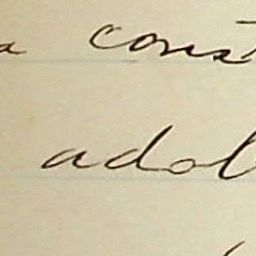 a const
adol